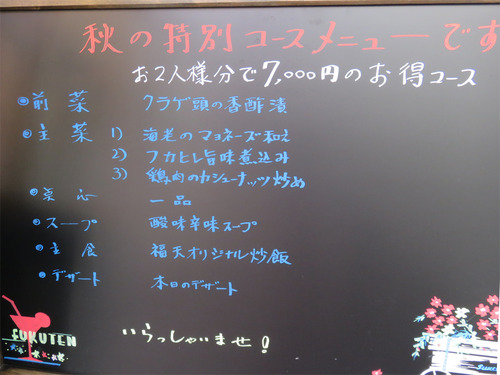 秋の特別コースメニューです
お2人様分で7,000円のお得コース
●前菜 クラゲ頭の香酢漬
●主菜 1) 海老のマヨネーズ和え
2) フカヒレ旨味煮込み
3) 鶏肉のカシューナッツ炒め
●点心 一品
●スープ 酸味辛味スープ
●主食 福天オリジナル炒飯
●デザート 本日のデザート
いらっしゃいませ!
FUKUTEN